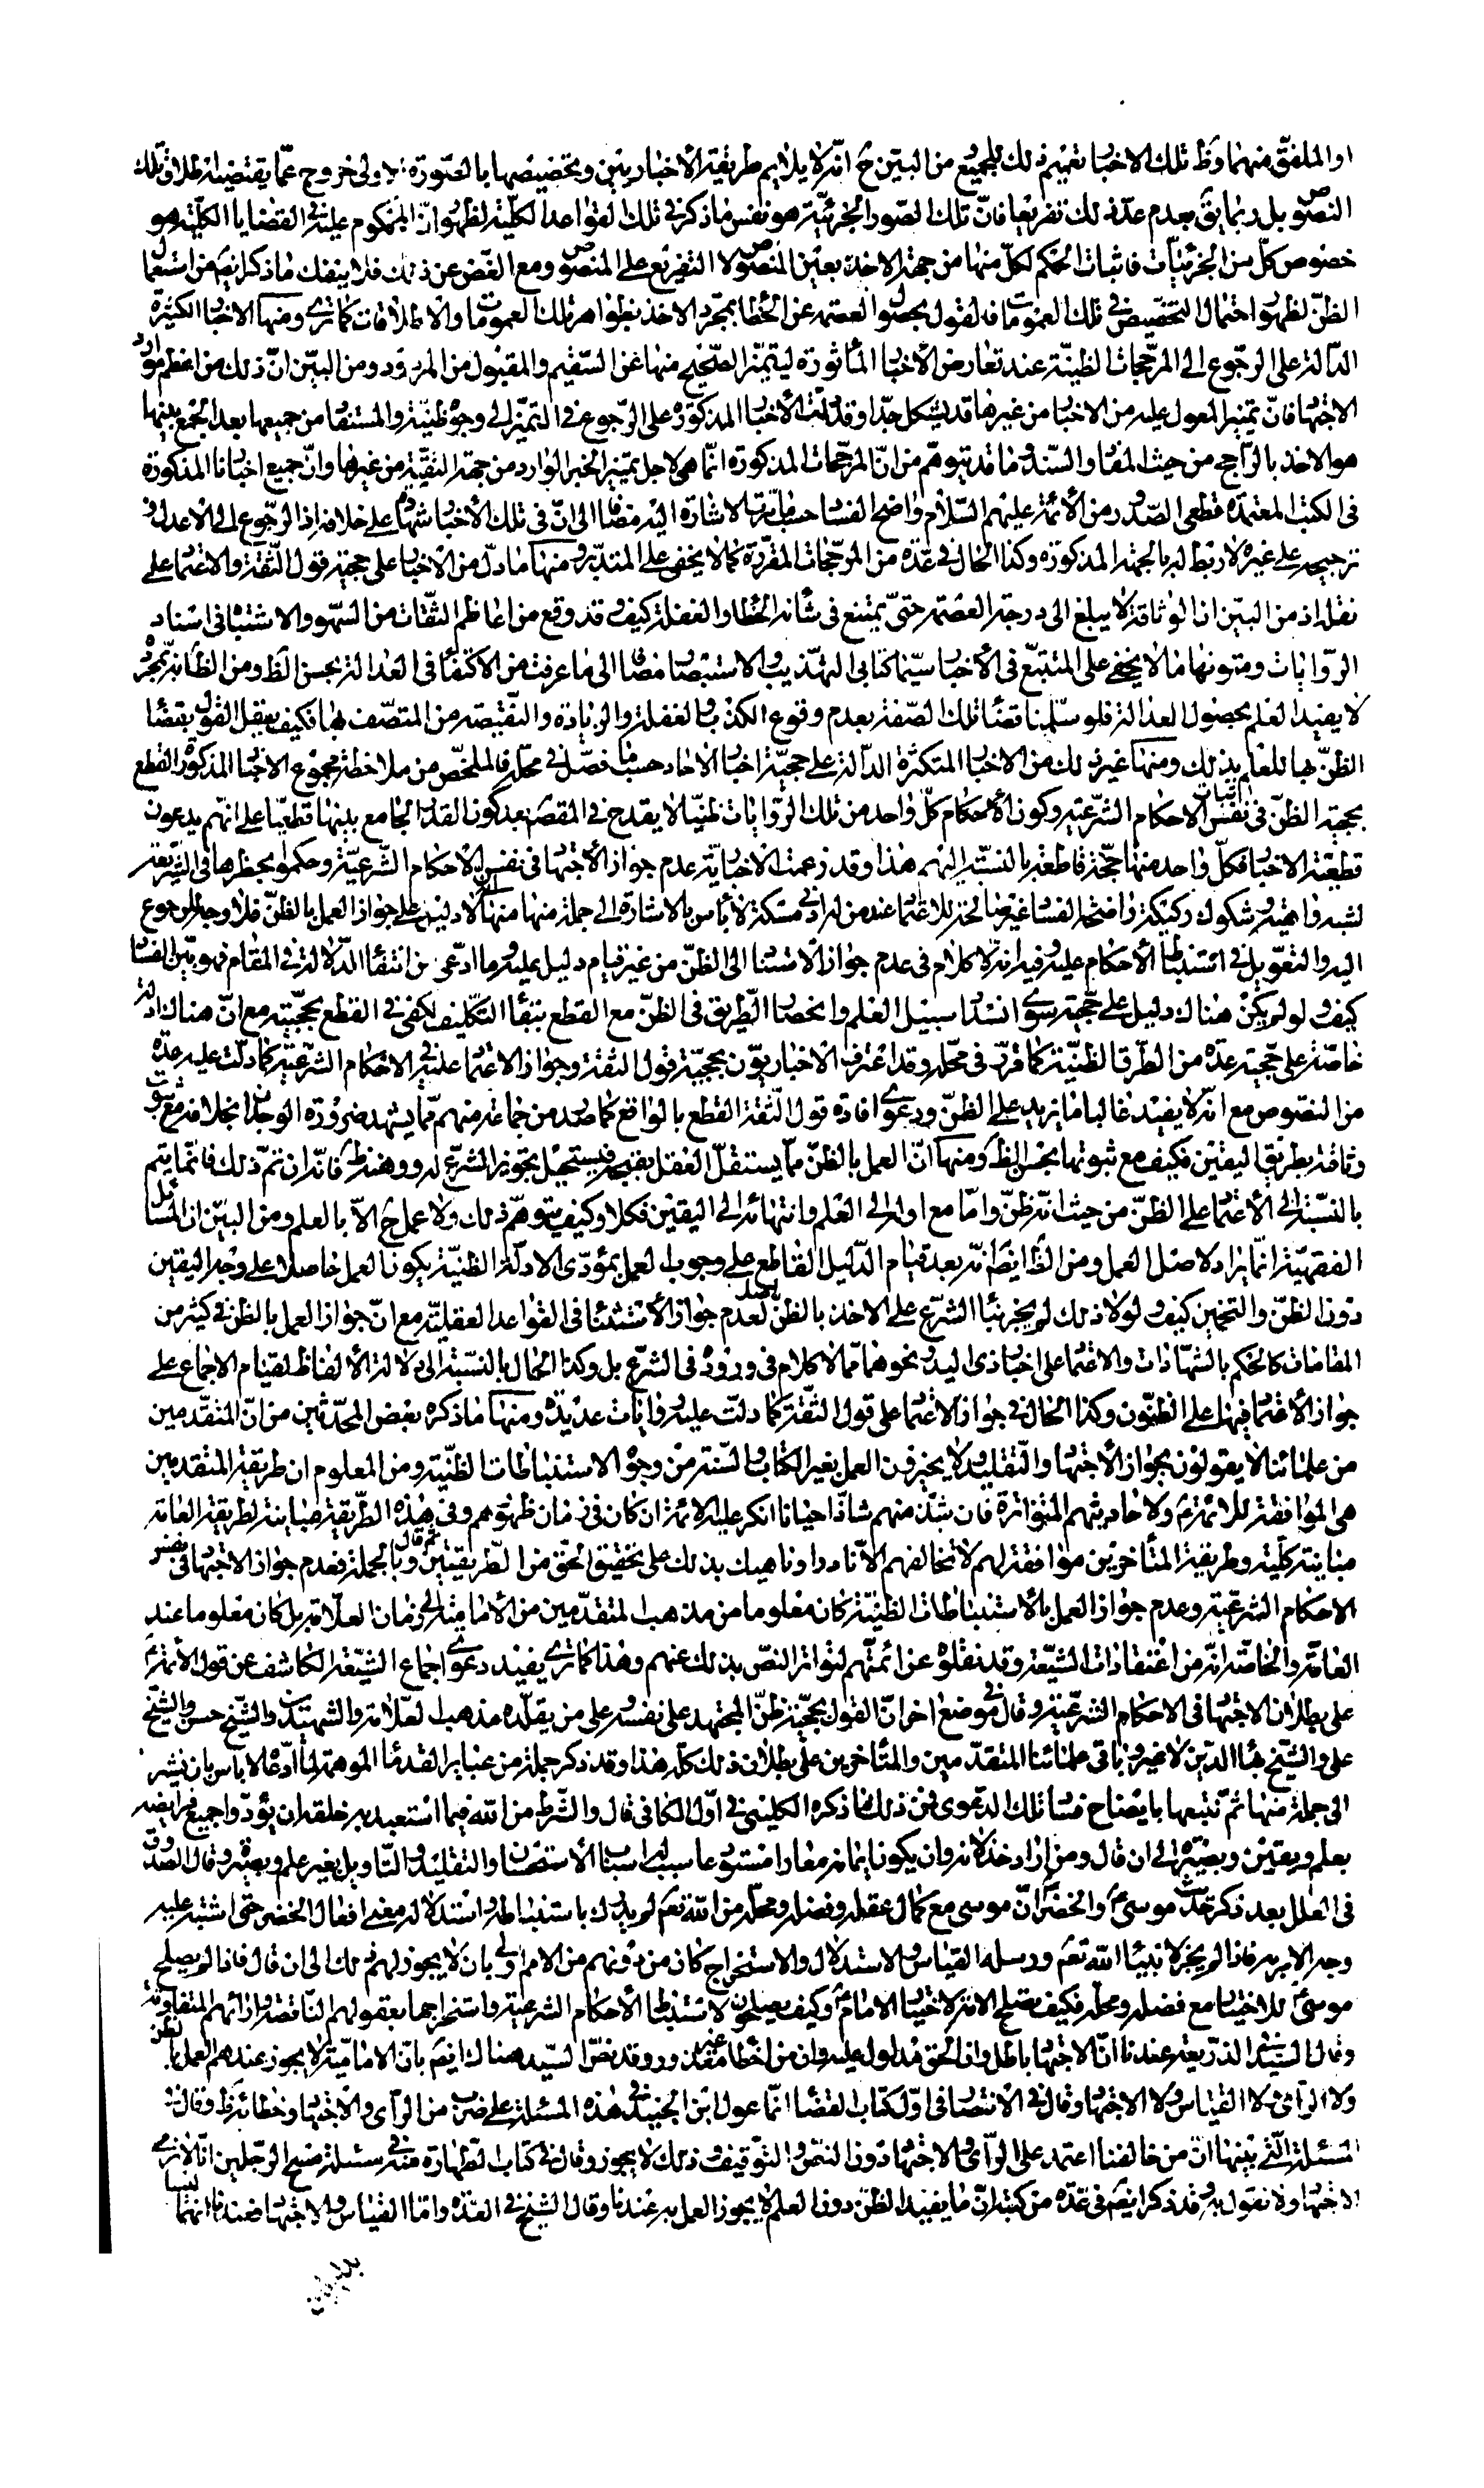 او الملفق منهما وظ تلك الاخبا تعميم ذلك للجميع من البين ح انه لا يلايم طريقة الأخباريين وتخصيصها بالصورة الاولى خروج عما يقتضيه اطلاق تلك
النصو بل ربما يق بعدم عد ذلك تفريعا فان تلك الصور الجزئية هو نفس ما ذكر في تلك القواعد الكلية لظهوا ان المحكوم عليه في القضايا الكلية هو
خصوص كل من الجزئيات فاثبات الحكم لكل منها من جهة الاخذ بعين المنصو لا التفريع على المنصو ومع الغض عن ذلك فلا ينفك ما ذكر ايض من استعما
الظن لظهوا احتمال التخصيص في تلك العموما فالقول بحصوا العصمة عن الخطا بمجرد الاخذ بظواهر تلك العموما والاطلاقات كما ترى ومنها الاخبا الكثيرة
الدالة على الرجوع الى المرجحات الظنية عند تعارض الأخبا المأثورة ليتميز الصحيح منها عن السقيم والمقبول من المردود ومن البين ان ذلك من اعظم موارد
الاجتها فان تميز المعول عليه من الاخبا من غيرها قد يشكل جدا وقد دلت الأخبا المذكورة على الرجوع في التميز الى وجوه ظنية والمستفا من جميعها بعد الجمع بينها
هو الاخذ بالراجح من حيث المفا والسند وما قد يتوهم من ان المرجحات المذكورة انما هي لاجل تميز الخبر الوارد من جهة التقية من غيرها وان جميع اخبانا المذكورة
في الكتب المعتمدة قطعي الصدور من الأئمة عليهم السلام واضح الفسا حسبما مرت الاشارة اليه مضا الى ان في تلك الأخبا شهادة على خلافه اذ الرجوع الى الاعدل و
ترجيحه على غيره لا ربط له بالجهة المذكورة وكذا الحال في عدة من المرجحات المقررة كما لا يخفى على المتدبر ومنها ما دل من الاخبا على حجية قول الثقة والاعتما على
نقله اذ من البين ان الوثاقة لا يبلغ الى درجة العصمة حتى يمتنع في شأنه الخطا والغفلة كيف وقد وقع من اعاظم الثقات من السهو والاشتبا في اسناد
الروايات ومتونها ما لا يخفى على المتتبع في الأخبا سيما كتابي التهذيب والاستبصا مضا الى ما عرفت من الاكتفا في العدالة بحسن الظ ومن الظ انه بمجرده
لا يفيد العلم بحصول العدالة فلو سلمنا قضا تلك الصفة بعدم وقوع الكذب والغفلة والزيادة والنقيصة من المتصف بها فكيف يعقل القول بقضا
الظن بها للعلم بذلك ومنها غير ذلك من الاخبا المتكثرة الدالة على حجية اخبا الأحاد حسبما فصل في محله فالملخص من ملاحظة مجموع الاخبا المذكورة القطع
بحجية الظن في نفس الاحكام الشرعية وكون الأحكام كل واحد من تلك الروايات ظنيا لا يقدح في المقص بعد كون القدر الجامع بينها قطعيا على انهم يدعون
قطعية الاخبا فكل واحد منها حجة قاطعة بالنسبة اليهم هذا وقد زعمت الأخبارية عدم جواز الاجتها في نفس الاحكام الشرعية وحكموا بحظرها في الشريعة
لشبه واهية وشكوك ركيكة واضحة الفسا غير صالحة للاعتما عند من له ادنى مسكة لا بأس بالاشارة الى جملة منها منها انه لا دليل على جواز العمل بالظن فلا وجه للرجوع
اليه والتعويل في استنبطا الأحكام عليه وفيه انه لا كلام في عدم جواز الاستنا الى الظن من غير قيام دليل عليه وما ادعى من انتفا الدلالة في المقام فهو بين الفسا
كيف ولو لم يكن هناك دليل على حجيته سوى انسدا سبيل العلم وانحصا الطريق في الظن مع القطع ببقا التكليف لكفى في القطع بحجيته مع ان هناك ادلة
خاصة على حجية عدة من الطرق الظنية كما قرر في محله وقد اعترف الاخباريون بحجية قول الثقة وجواز الاعتما عليه في الاحكام الشرعية كما دلت عليه عدة
من النصوص مع انه لا يفيد غالبا ما يزيد على الظن ودعوى افادة قول الثقة القطع بالواقع كما صد من جماعة منهم مما يشهد ضرورة الوجدان بخلافه مع ثبوت
وثاقته بطريق اليقين فكيف مع ثبوتها بحسن الظ ومنها ان العمل بالظن مما يستقل العقل بقبحه فيستحيل تجويز الشرع له ووهنه ظ فانه ان تم ذلك فانما يتم
بالنسبة الى الأعتما على الظن من حيث انه ظن واما مع اوله الى العلم وانتهائه الى اليقين فكلا وكيف يتوهم ذلك ولا عمل ح الا بالعلم ومن البين ان المسائل
الفقهية انما يراد لاصل العمل ومن الظ ايض انه بعد قيام الدليل القاطع على وجوب العمل بمؤدى الادلة الظنية يكون العمل حاصلا على وجه اليقين
دون الظن والتخمين كيف ولولا ذلك لم يجز بنا الشرع على الاخذ بالظن لعدم جواز الأستثنا في القواعد العقلية مع ان جواز العمل بالظن في كثير من
المقامات كالحكم بالشهادات والاعتما على اخبا ذى اليد ونحوهما مما لا كلام في وروده في الشرع بل وكذا الحال بالنسبة الى دلالة الألفاظ لقيام الاجماع على
جواز الأعتما فيها على الظنون وكذا الحال في جواز الأعتما على قول الثقة كما دلت عليه روايات عديدة ومنها ما ذكره بعض المحدثين من ان المتقدمين
من علمائنا لا يقولون بجواز الأجتها والتقليد ولا يجيزون العمل بغير الكتاب والسنة من وجوه الاستنباطات الظنية ومن المعلوم ان طريقة المتقدمين
هي الموافقة للائمة ع ولاحاديثهم المتواترة فان شذ منهم شاذ احيانا انكر عليه الائمة ان كان في زمان ظهورهم وفي هذه الطريقة مباينة لطريقة العامة
مباينة كلية وطريقة المتأخرين موافقة لهم لا تخالفهم الا نادرا وناهيك بذلك على تحقيق الحق من الطريقتين ثم قال وبالجملة فعدم جواز الاجتها في نفس
الاحكام الشرعية وعدم جواز العمل بالأستنباطات الظنية كان معلوما من مذهب المتقدمين من الأمامية الى زمان العلامة بل كان معلوما عند
العامة والخاصة انه من اعتقادات الشيعة وقد نقلوه عن ائمتهم لتواتر النص بذلك عنهم وهذا كما ترى يفيد دعوى اجماع الشيعة الكاشف عن قول الأئمة ع
على بطلان الاجتها في الاحكام الشرعية وقال في موضع اخر ان القول بحجية ظن المجتهد على نفسه وعلى من يقلده مذهب العلامة والشهيدين والشيخ حسن والشيخ
على والشيخ بهاء الدين لا غير وباقي علمائنا المتقدمين والمتاخرين على بطلان ذلك كله هذا وقد ذكر جملة من عبائر القدما الموهمة لما ادعا لا باس بان نشير
الى جملة منها ثم نتبعها بايضاح فسا تلك الدعوى فمن ذلك ما ذكره الكليني في اول الكافي قال والشرط من الله فيما استعبد به خلقه ان يؤدوا جميع فرايضه
بعلم ويقين وبصيرة الى ان قال ومن اراد خذلانه وان يكون ايمانه معارا مستودعا سبب له اسباب الأستحسان والتقليد والتأويل بغير علم وبصيرة وقال الصدوق
في العلل بعد ذكر حديث موسى ع والخضر ع ان موسى مع كمال عقله وفضله ومحله من الله تعم لم يدرك باستنباطه واستدلاله معنى افعال الخضر حتى اشتبه عليه
وجه الامر به فاذا لم يجز لانبياء الله تعم ورسله القياس والاستدلال والاستخراج كان من دونهم من الامم اولى بان لا يجوز لهم ذلك الى ان قال فاذا لم يصلح
موسى ع للاختيا مع فضله ومحله فكيف يصلح الامة لاختيا الامام ع وكيف يصلحون لاستنبطا الأحكام الشرعية واستخراجها بعقولهم الناقصة وارائهم المتفاوتة
وقال السيد في الذريعة عندنا ان الاجتها باطل وان الحق مدلول عليه وان من اخطا غير معذور وقد نص السيد هناك ايض بان الامامية لا يجوز عندهم العمل بالظن
ولا الرأى ولا القياس ولا الاجتها وقال في الأنتصا في اول كتاب القضا انما عول ابن الجنيد في هذه المسئلة على ضرب من الرأى والأجتها وخطائه ظ وقال في
المسئلة التي يتبها ان من خالفنا اعتمد على الرأى والاجتها دون النص والتوقيف وذلك لا يجوز وقال في كتاب الطهارة منه في مسئلة مسح الرجلين انا لا نرى
الاجتها ولا نقول به وقد ذكر ايض في عدة من كتبه ان ما يفيد الظن دون العلم لا يجوز العمل به عندنا وقال الشيخ في العدة واما القياس والاجتها فعندنا انهما ليسا